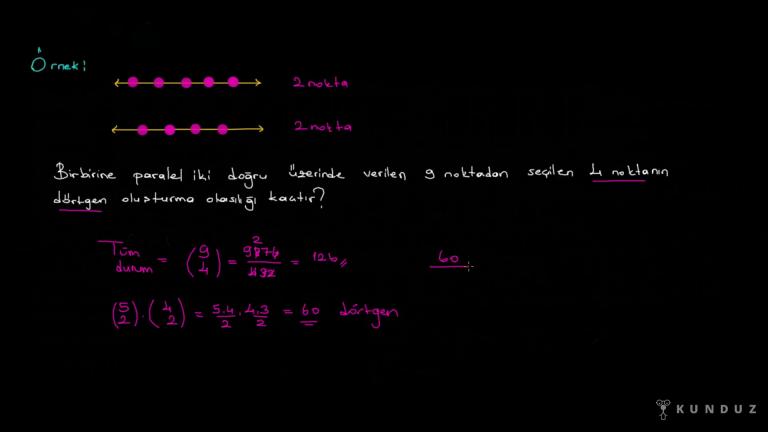 Örnek:
2 nokta
2 nokta
Birbirine paralel iki doğru üzerinde verilen 9 noktadan seçilen 4 noktanın
dörtgen oluşturma olasılığı kaçtır?
Tüm durum = (9 4) = 9876/432 = 126 60
2
(5 2) . (4 2) = 5.4/2 . 4.3/2 = 60 dörtgen
KUNDUZ